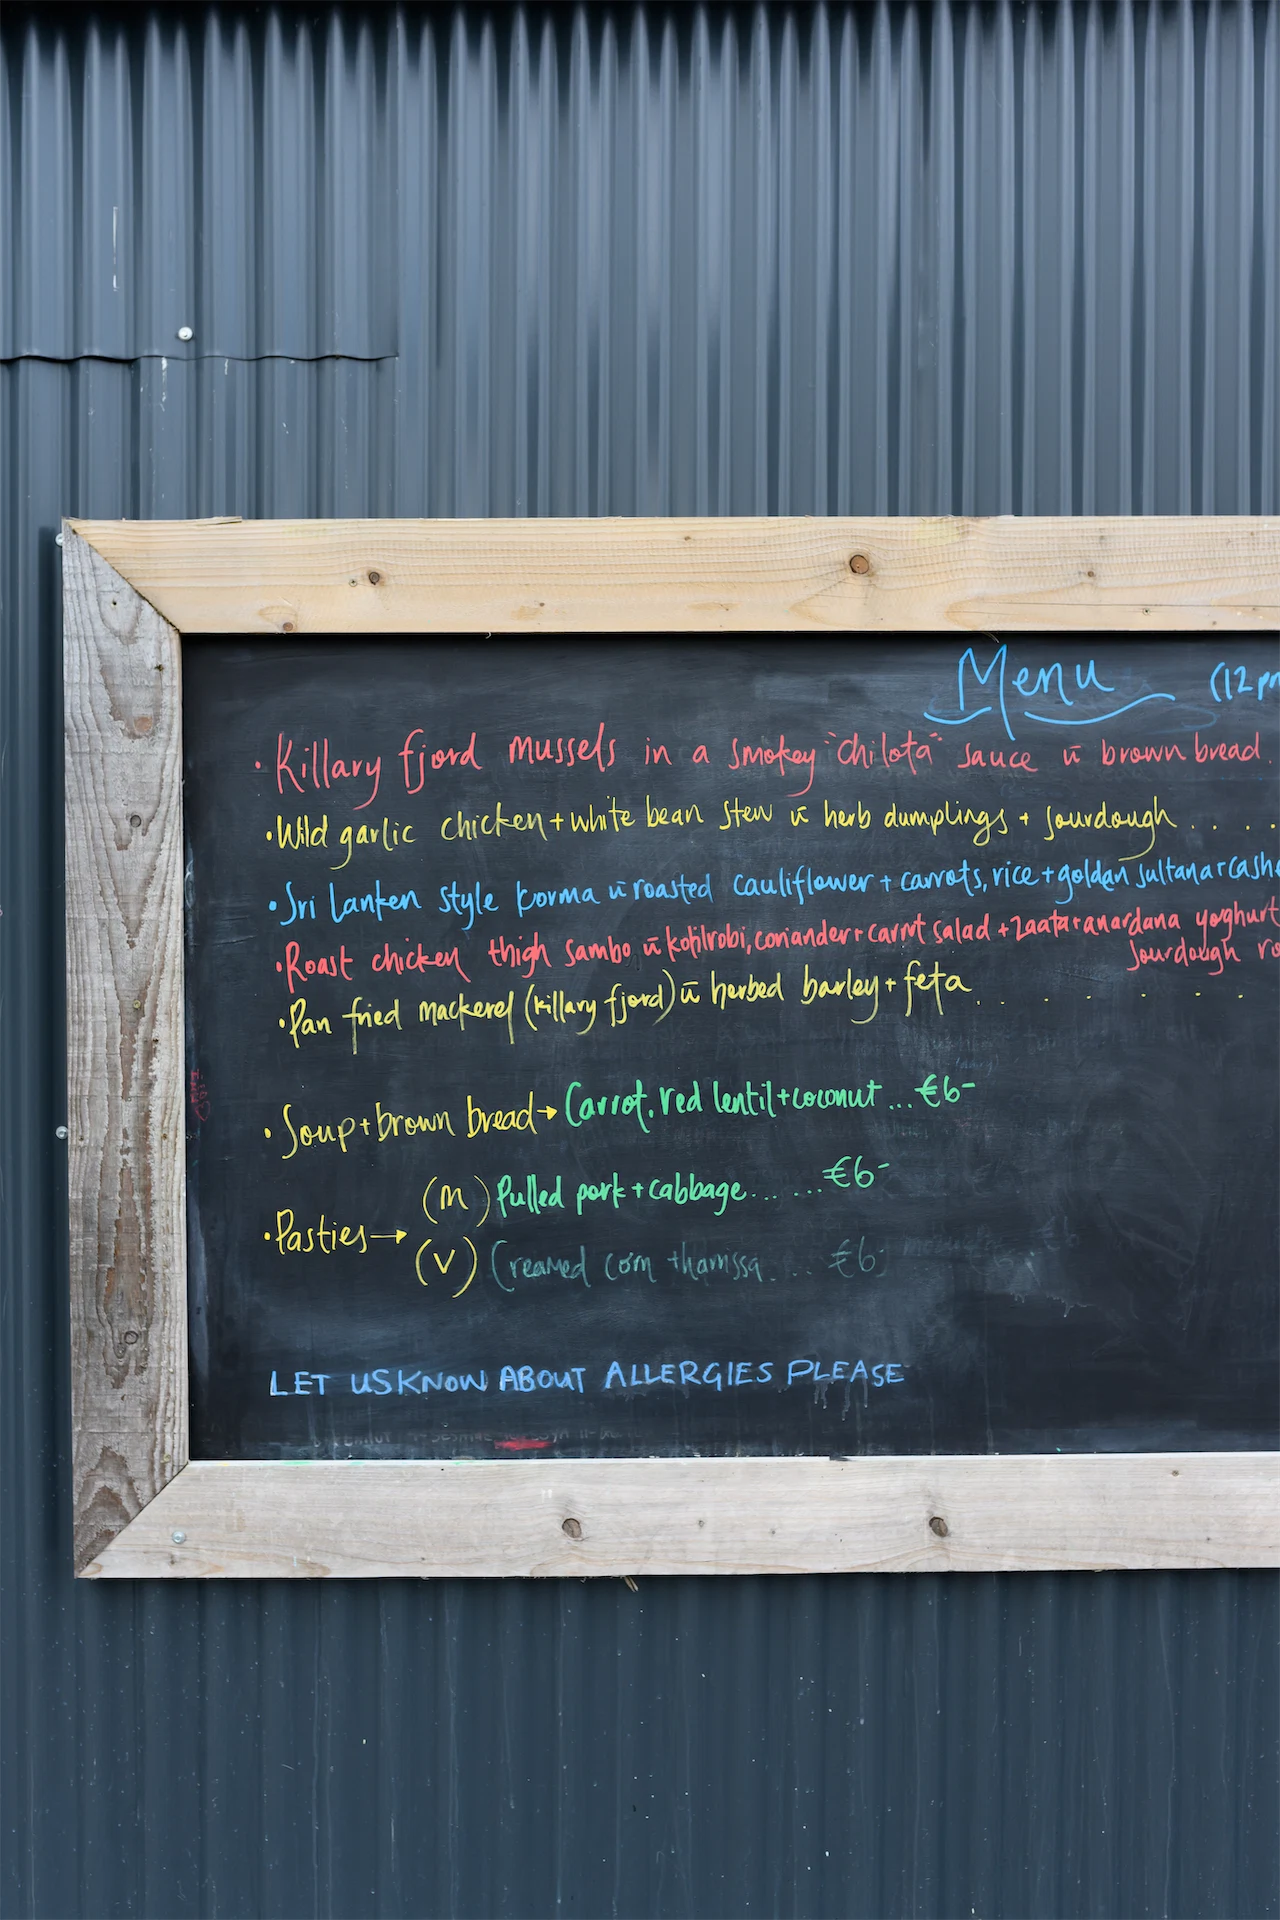 Menu (12 pm
• Killary fjord mussels in a smokey "chilota" sauce w̄ brown bread.
• Wild garlic chicken + white bean stew w̄ herb dumplings + sourdough . . . .
• Sri Lanken style korma w̄ roasted cauliflower + carrots, rice + goldan sultana + cashe
• Roast chicken thigh sambo w̄ kohlrobi, coriander + carrot salad + zaatar + anardana yoghurt
sourdough ro
• Pan fried mackerel (killary fjord) w̄ herbed barley + feta . . . . . .
• Soup + brown bread → Carrot, red lentil + coconut ... €6-
(M) Pulled pork + cabbage... ... €6-
• Pasties →
(V) Creamed corn + harissa .... €6-
LET US KNOW ABOUT ALLERGIES PLEASE